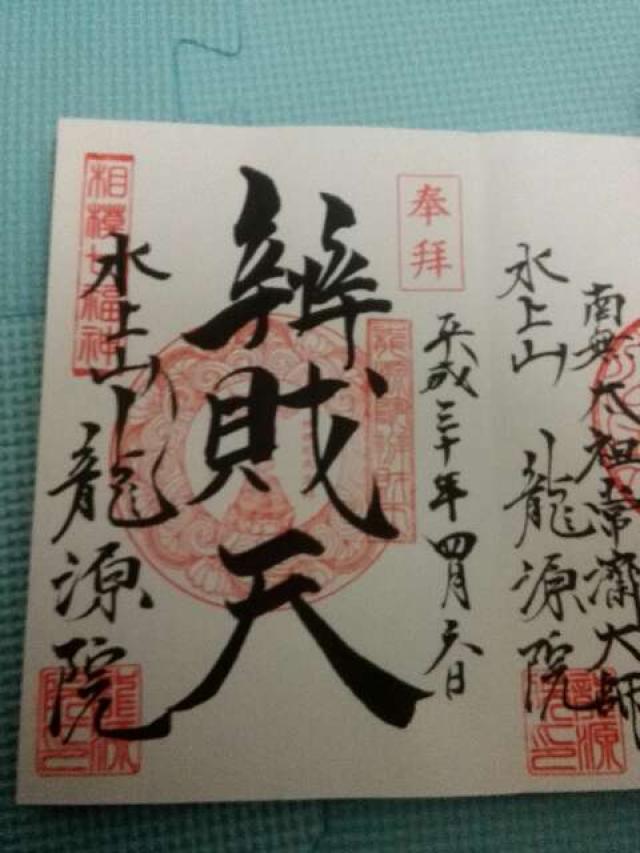 南無太祖常濟大師
水上山 龍源院
奉拝
平成三十年四月六日
辨財天
相模七福神
水上山 龍源院
龍源院印
龍源院印